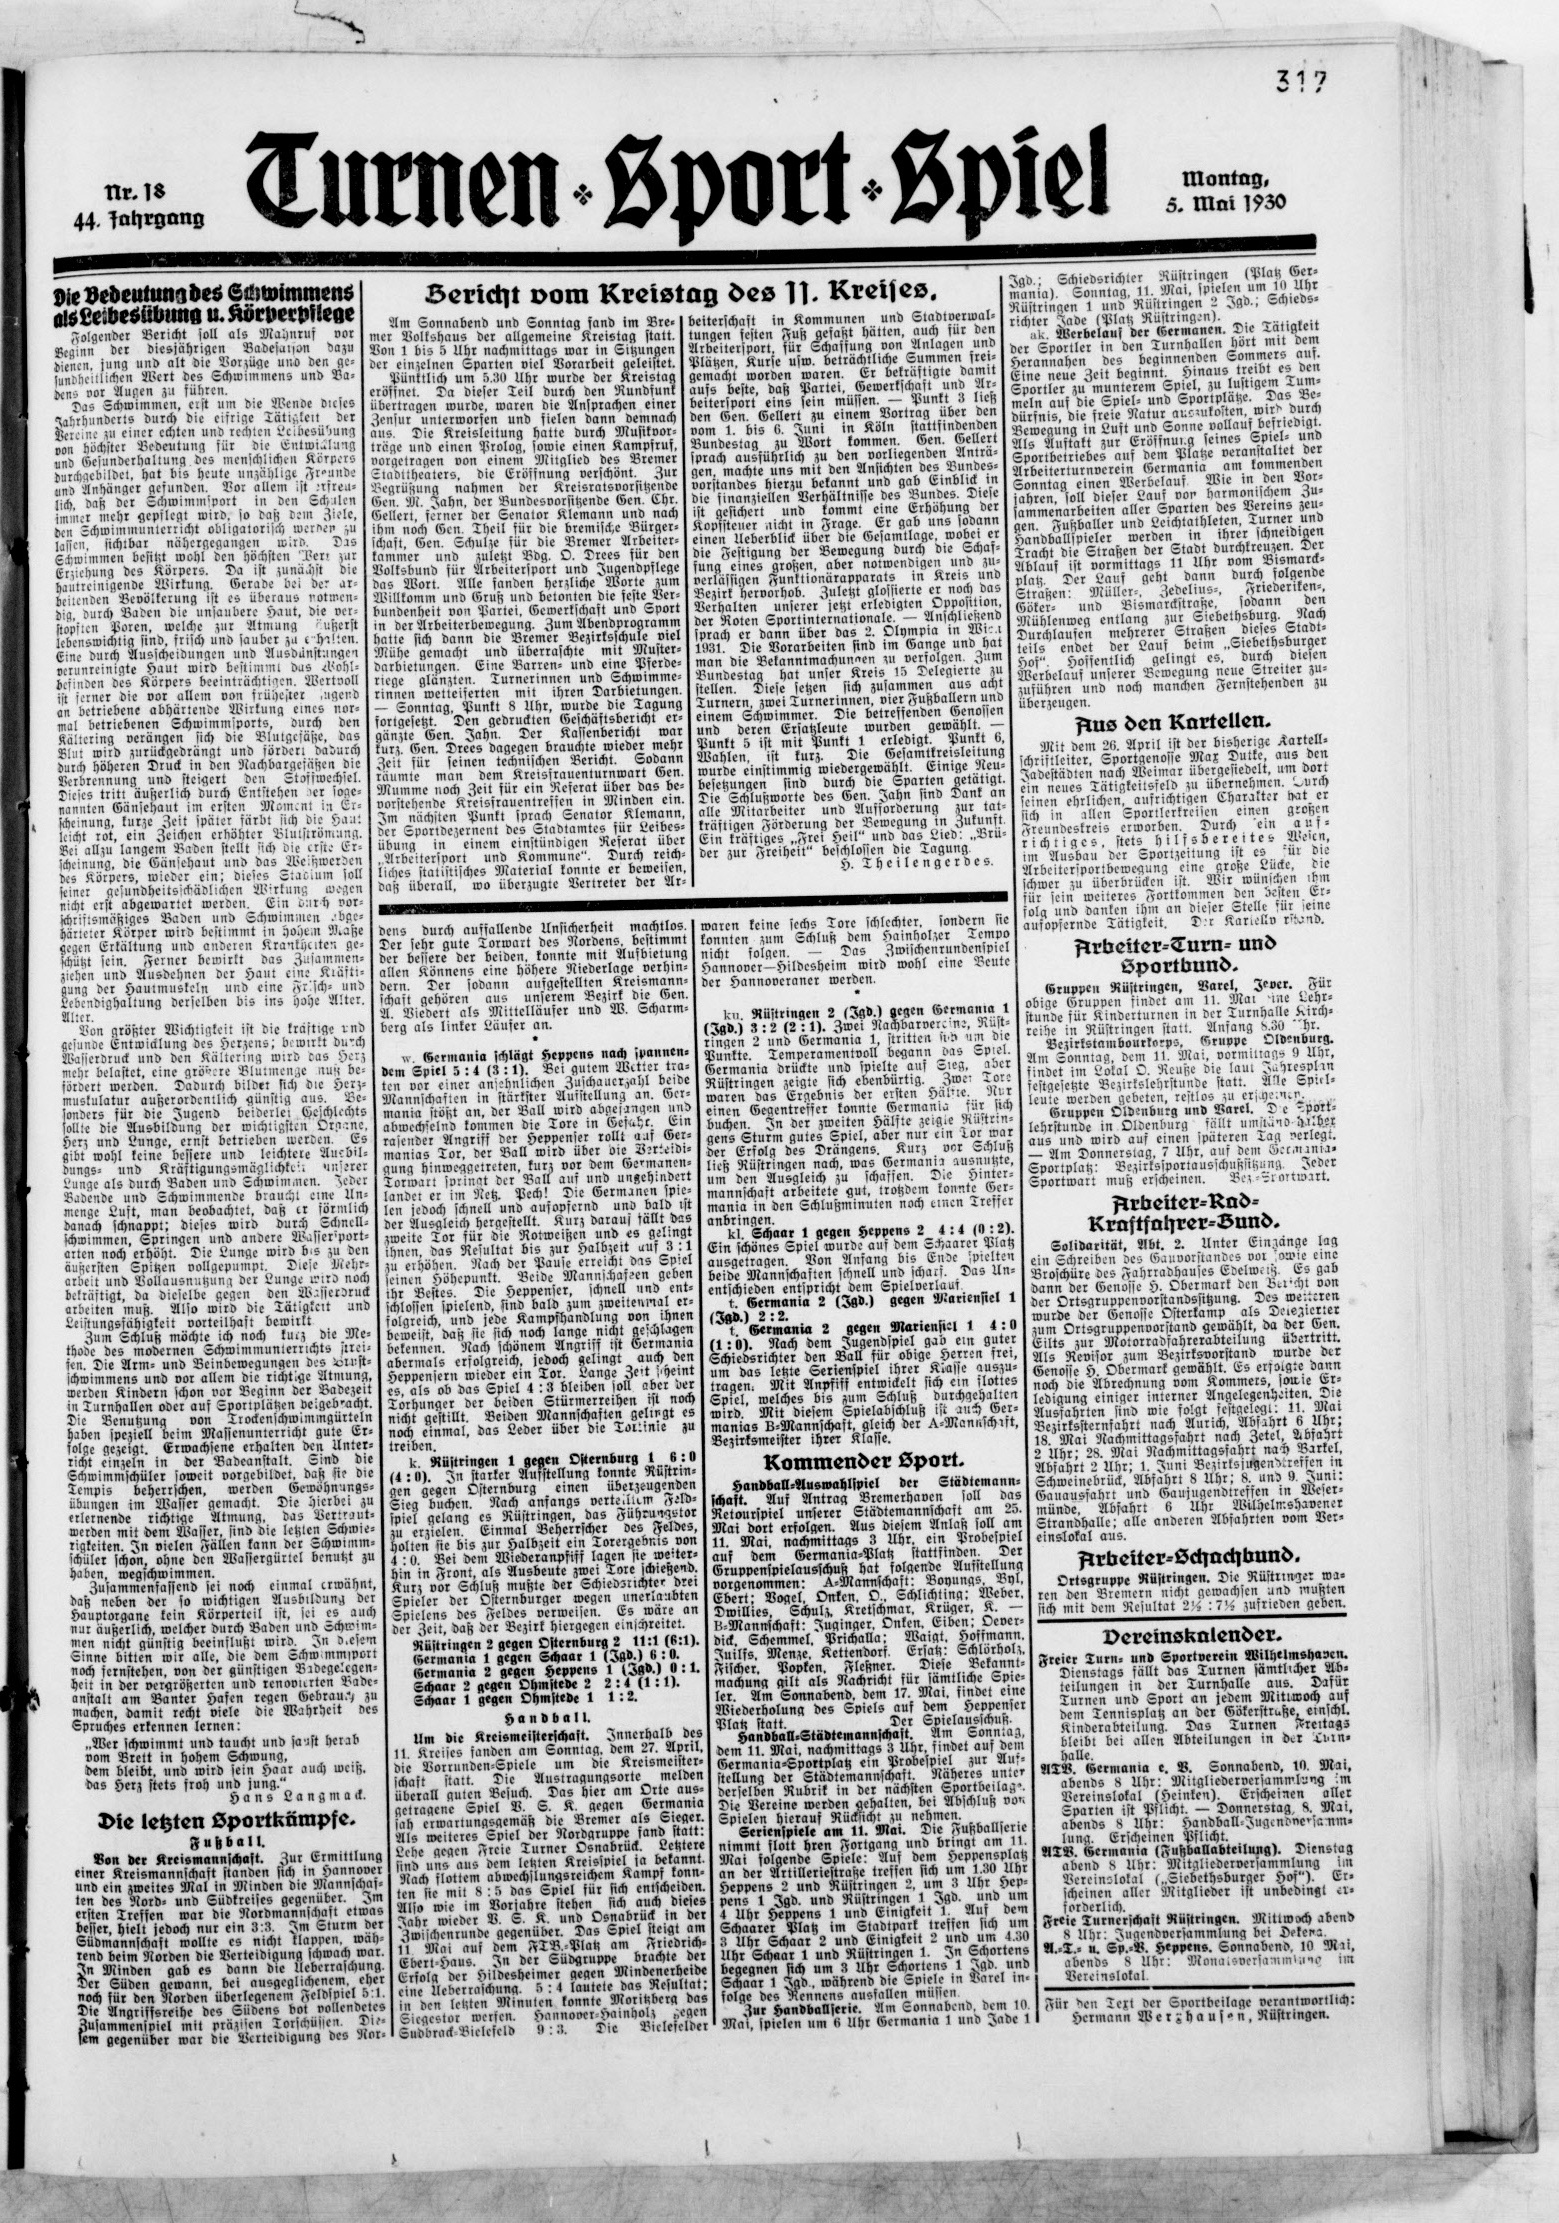 317
Nr. 18
44. Jahrgang
Turnen · Sport · Spiel
Montag,
5. Mai 1930
Die Bedeutung des Schwimmens
als Leibesübung u. Körperpflege
Folgender Bericht soll als Mahnruf vor
Beginn der diesjährigen Badesaison dazu
dienen, jung und alt die Vorzüge und den ge-
sundheitlichen Wert des Schwimmens und Ba-
dens vor Augen zu führen.
Das Schwimmen, erst um die Wende dieses
Jahrhunderts durch die eifrige Tätigkeit der
Vereine zu einer echten und rechten Leibesübung
von höchster Bedeutung für die Entwicklung
und Gesunderhaltung des menschlichen Körpers
durchgebildet, hat bis heute unzählige Freunde
und Anhänger gefunden. Vor allem ist erfreu-
lich, daß der Schwimmsport in den Schulen
immer mehr gepflegt wird, so daß dem Ziele,
den Schwimmunterricht obligatorisch werden zu
lassen, sichtbar nähergegangen wird. Das
Schwimmen besitzt wohl den höchsten Wert zur
Erziehung des Körpers. Da ist zunächst die
hautreinigende Wirkung. Gerade bei der ar-
beitenden Bevölkerung ist es überaus notwen-
dig, durch Baden die unsaubere Haut, die ver-
stopften Poren, welche zur Atmung äußerst
lebenswichtig sind, frisch und sauber zu erhalten.
Eine durch Ausscheidungen und Ausdünstungen
verunreinigte Haut wird bestimmt das Wohl-
befinden des Körpers beeinträchtigen. Wertvoll
ist ferner die vor allem von frühester Jugend
an betriebene abhärtende Wirkung eines nor-
mal betriebenen Schwimmsports, durch den
Kältering verängen sich die Blutgefäße, das
Blut wird zurückgedrängt und fördert dadurch
durch höheren Druck in den Nachbargefäßen die
Verbrennung und steigert den Stoffwechsel.
Dieses tritt äußerlich durch Entstehen der soge-
nannten Gänsehaut im ersten Moment in Er-
scheinung, kurze Zeit später färbt sich die Haut
leicht rot, ein Zeichen erhöhter Blutströmung.
Bei allzu langem Baden stellt sich die erste Er-
scheinung, die Gänsehaut und das Weißwerden
des Körpers, wieder ein; dieses Stadium soll
seiner gesundheitsschädlichen Wirkung wegen
nicht erst abgewartet werden. Ein durch vor-
schriftsmäßiges Baden und Schwimmen abge-
härteter Körper wird bestimmt in hohem Maße
gegen Erkältung und anderen Krankheiten ge-
schützt sein. Ferner bewirkt das Zusammen-
ziehen und Ausdehnen der Haut eine Kräfti-
gung der Hautmuskeln und eine Frisch- und
Lebendighaltung derselben bis ins hohe Alter.
Alter.
Von größter Wichtigkeit ist die kräftige und
gesunde Entwicklung des Herzens; bewirkt durch
Wasserdruck und den Kältering wird das Herz
mehr belastet, eine größere Blutmenge muß be-
fördert werden. Dadurch bildet sich die Herz-
muskulatur außerordentlich günstig aus. Be-
sonders für die Jugend beiderlei Geschlechts
sollte die Ausbildung der wichtigsten Organe,
Herz und Lunge, ernst betrieben werden. Es
gibt wohl keine bessere und leichtere Ausbil-
dungs- und Kräftigungsmöglichkeit unserer
Lunge als durch Baden und Schwimmen. Jeder
Badende und Schwimmende braucht eine Un-
menge Luft, man beobachtet, daß er förmlich
danach schnappt; dieses wird durch Schnell-
schwimmen, Springen und andere Wassersport-
arten noch erhöht. Die Lunge wird bis zu den
äußersten Spitzen vollgepumpt. Diese Mehr-
arbeit und Vollausnutzung der Lunge wird noch
bekräftigt, da dieselbe gegen den Wasserdruck
arbeiten muß. Also wird die Tätigkeit und
Leistungsfähigkeit vorteilhaft bewirkt
Zum Schluß möchte ich noch kurz die Me-
thode des modernen Schwimmunterrichts strei-
fen. Die Arm- und Beinbewegungen des Brust-
schwimmens und vor allem die richtige Atmung,
werden Kindern schon vor Beginn der Badezeit
in Turnhallen oder auf Sportplätzen beigebracht.
Die Benutzung von Trockenschwimmgürteln
haben speziell beim Massenunterricht gute Er-
folge gezeigt. Erwachsene erhalten den Unter-
richt einzeln in der Badeanstalt. Sind die
Schwimmschüler soweit vorgebildet, daß sie die
Tempis beherrschen, werden Gewöhnungs-
übungen im Wasser gemacht. Die hierbei zu
erlernende richtige Atmung, das Vertraut-
werden mit dem Wasser, sind die letzten Schwie-
rigkeiten. In vielen Fällen kann der Schwimm-
schüler schon, ohne den Wassergürtel benutzt zu
haben, wegschwimmen.
Zusammenfassend sei noch einmal erwähnt,
daß neben der so wichtigen Ausbildung der
Hauptorgane kein Körperteil ist, sei es auch
nur äußerlich, welcher durch Baden und Schwim-
men nicht günstig beeinflußt wird. In diesem
Sinne bitten wir alle, die dem Schwimmsport
noch fernstehen, von der günstigen Badegelegen-
heit in der vergrößerten und renovierten Bade-
anstalt am Banter Hafen regen Gebrauch zu
machen, damit recht viele die Wahrheit des
Spruches erkennen lernen:
„Wer schwimmt und taucht und saust herab
vom Brett in hohem Schwung,
dem bleibt, und wird sein Haar auch weiß,
das Herz stets froh und jung.“
Hans Langmack.
Die letzten Sportkämpfe.
Fußball.
Von der Kreismannschaft. Zur Ermittlung
einer Kreismannschaft standen sich in Hannover
und ein zweites Mal in Minden die Mannschaf-
ten des Nord- und Südkreises gegenüber. Im
ersten Treffen war die Nordmannschaft etwas
besser, hielt jedoch nur ein 3:3. Im Sturm der
Südmannschaft wollte es nicht klappen, wäh-
rend beim Norden die Verteidigung schwach war.
In Minden gab es dann die Ueberraschung.
Der Süden gewann, bei ausgeglichenem, eher
noch für den Norden überlegenem Feldspiel 5:1.
Die Angriffsreihe des Südens bot vollendetes
Zusammenspiel mit präzisen Torschüssen. Die-
sem gegenüber war die Verteidigung des Nor-
Bericht vom Kreistag des 11. Kreises.
Am Sonnabend und Sonntag fand im Bre-
mer Volkshaus der allgemeine Kreistag statt.
Von 1 bis 5 Uhr nachmittags war in Sitzungen
der einzelnen Sparten viel Vorarbeit geleistet.
Pünktlich um 5.30 Uhr wurde der Kreistag
eröffnet. Da dieser Teil durch den Rundfunk
übertragen wurde, waren die Ansprachen einer
Zensur unterworfen und fielen dann demnach
aus. Die Kreisleitung hatte durch Musikvor-
träge und einen Prolog, sowie einen Kampfruf,
vorgetragen von einem Mitglied des Bremer
Stadttheaters, die Eröffnung verschönt. Zur
Begrüßung nahmen der Kreisratsvorsitzende
Gen. M. Jahn, der Bundesvorsitzende Gen. Chr.
Gellert, ferner der Senator Klemann und nach
ihm noch Gen. Theil für die bremische Bürger-
schaft, Gen. Schulze für die Bremer Arbeiter-
kammer und zuletzt Bdg. O. Drees für den
Volksbund für Arbeitersport und Jugendpflege
das Wort. Alle fanden herzliche Worte zum
Willkomm und Gruß und betonten die feste Ver-
bundenheit von Partei, Gewerkschaft und Sport
in der Arbeiterbewegung. Zum Abendprogramm
hatte sich dann die Bremer Bezirksschule viel
Mühe gemacht und überraschte mit Muster-
darbietungen. Eine Barren- und eine Pferde-
riege glänzten. Turnerinnen und Schwimme-
rinnen wetteiferten mit ihren Darbietungen.
— Sonntag, Punkt 8 Uhr, wurde die Tagung
fortgesetzt. Den gedruckten Geschäftsbericht er-
gänzte Gen. Jahn. Der Kassenbericht war
kurz. Gen. Drees dagegen brauchte wieder mehr
Zeit für seinen technischen Bericht. Sodann
räumte man dem Kreisfrauenturnwart Gen.
Mumme noch Zeit für ein Referat über das be-
vorstehende Kreisfrauentreffen in Minden ein.
Im nächsten Punkt sprach Senator Klemann,
der Sportdezernent des Stadtamtes für Leibes-
übung in einem einstündigen Referat über
„Arbeitersport und Kommune“. Durch reich-
liches statistisches Material konnte er beweisen,
daß überall, wo überzugte Vertreter der Ar-
beiterschaft in Kommunen und Stadtverwal-
tungen festen Fuß gefaßt hätten, auch für den
Arbeitersport, für Schaffung von Anlagen und
Plätzen, Kurse usw. beträchtliche Summen frei-
gemacht worden waren. Er bekräftigte damit
aufs beste, daß Partei, Gewerkschaft und Ar-
beitersport eins sein müssen. — Punkt 3 ließ
den Gen. Gellert zu einem Vortrag über den
vom 1. bis 6. Juni in Köln stattfindenden
Bundestag zu Wort kommen. Gen. Gellert
sprach ausführlich zu den vorliegenden Anträ-
gen, machte uns mit den Ansichten des Bundes-
vorstandes hierzu bekannt und gab Einblick in
die finanziellen Verhältnisse des Bundes. Diese
ist gesichert und kommt eine Erhöhung der
Kopfsteuer nicht in Frage. Er gab uns sodann
einen Ueberblick über die Gesamtlage, wobei er
die Festigung der Bewegung durch die Schaf-
fung eines großen, aber notwendigen und zu-
verlässigen Funktionärapparats in Kreis und
Bezirk hervorhob. Zuletzt glossierte er noch das
Verhalten unserer jetzt erledigten Opposition,
der Roten Sportinternationale. — Anschließend
sprach er dann über das 2. Olympia in Wien
1931. Die Vorarbeiten sind im Gange und hat
man die Bekanntmachungen zu verfolgen. Zum
Bundestag hat unser Kreis 15 Delegierte zu
stellen. Diese setzen sich zusammen aus acht
Turnern, zwei Turnerinnen, vier Fußballern und
einem Schwimmer. Die betreffenden Genossen
und deren Ersatzleute wurden gewählt. —
Punkt 5 ist mit Punkt 1 erledigt. Punkt 6,
Wahlen, ist kurz. Die Gesamtkreisleitung
wurde einstimmig wiedergewählt. Einige Neu-
besetzungen sind durch die Sparten getätigt.
Die Schlußworte des Gen. Jahn sind Dank an
alle Mitarbeiter und Aufforderung zur tat-
kräftigen Förderung der Bewegung in Zukunft.
Ein kräftiges „Frei Heil“ und das Lied: „Brü-
der zur Freiheit“ beschlossen die Tagung.
H. Theilengerdes.
dens durch auffallende Unsicherheit machtlos.
Der sehr gute Torwart des Nordens, bestimmt
der bessere der beiden, konnte mit Aufbietung
allen Könnens eine höhere Niederlage verhin-
dern. Der sodann aufgestellten Kreismann-
schaft gehören aus unserem Bezirk die Gen.
A. Biedert als Mittelläufer und W. Scharm-
berg als linker Läufer an.
*
w. Germania schlägt Heppens nach spannen-
dem Spiel 5:4 (3:1). Bei gutem Wetter tra-
ten vor einer ansehnlichen Zuschauerzahl beide
Mannschaften in stärkster Aufstellung an. Ger-
mania stößt an, der Ball wird abgefangen und
abwechselnd kommen die Tore in Gefahr. Ein
rasender Angriff der Heppenser rollt auf Ger-
manias Tor, der Ball wird über die Verteidi-
gung hinweggetreten, kurz vor dem Germanen-
Torwart springt der Ball auf und ungehindert
landet er im Netz. Pech! Die Germanen spie-
len jedoch schnell und aufopfernd und bald ist
der Ausgleich hergestellt. Kurz darauf fällt das
zweite Tor für die Rotweißen und es gelingt
ihnen, das Resultat bis zur Halbzeit auf 3:1
zu erhöhen. Nach der Pause erreicht das Spiel
seinen Höhepunkt. Beide Mannschafeen geben
ihr Bestes. Die Heppenser, schnell und ent-
schlossen spielend, sind bald zum zweitenmal er-
folgreich, und jede Kampfhandlung von ihnen
beweist, daß sie sich noch lange nicht geschlagen
bekennen. Nach schönem Angriff ist Germania
abermals erfolgreich, jedoch gelingt auch den
Heppensern wieder ein Tor. Lange Zeit scheint
es, als ob das Spiel 4:3 bleiben soll aber der
Torhunger der beiden Stürmerreihen ist noch
nicht gestillt. Beiden Mannschaften gelingt es
noch einmal, das Leder über die Torlinie zu
treiben.
k. Rüstringen 1 gegen Osternburg 1 6:0
(4:0). In starker Aufstellung konnte Rüstrin-
gen gegen Osternburg einen überzeugenden
Sieg buchen. Nach anfangs verteiltem Feld-
spiel gelang es Rüstringen, das Führungstor
zu erzielen. Einmal Beherrscher des Feldes,
holten sie bis zur Halbzeit ein Torergebnis von
4:0. Bei dem Wiederanpfiff lagen sie weiter-
hin in Front, als Ausbeute zwei Tore schießend.
Kurz vor Schluß mußte der Schiedsrichter drei
Spieler der Osternburger wegen unerlaubten
Spielens des Feldes verweisen. Es wäre an
der Zeit, daß der Bezirk hiergegen einschreitet.
Rüstringen 2 gegen Osternburg 2 11:1 (6:1).
Germania 1 gegen Schaar 1 (Jgd.) 6:0.
Germania 2 gegen Heppens 1 (Jgd.) 0:1.
Schaar 2 gegen Ohmstede 2 2:4 (1:1).
Schaar 1 gegen Ohmstede 1 1:2.
Handball.
Um die Kreismeisterschaft. Innerhalb des
11. Kreises fanden am Sonntag, dem 27. April,
die Vorrunden-Spiele um die Kreismeister-
schaft statt. Die Austragungsorte melden
überall guten Besuch. Das hier am Orte aus-
getragene Spiel V. S. K. gegen Germania
sah erwartungsgemäß die Bremer als Sieger.
Als weiteres Spiel der Nordgruppe fand statt:
Lehe gegen Freie Turner Osnabrück. Letztere
sind uns aus dem letzten Kreisspiel ja bekannt.
Nach flottem abwechslungsreichem Kampf konn-
ten sie mit 8:5 das Spiel für sich entscheiden.
Also wie im Vorjahre stehen sich auch dieses
Jahr wieder V. S. K. und Osnabrück in der
Zwischenrunde gegenüber. Das Spiel steigt am
11. Mai auf dem FTB-Platz am Friedrich-
Ebert-Haus. In der Südgruppe brachte der
Erfolg der Hildesheimer gegen Mindenerheide
eine Ueberraschung. 5:4 lautete das Resultat;
in den letzten Minuten konnte Moritzberg das
Siegestor werfen. Hannover-Hainholz gegen
Sudbrack-Bielefeld 9:3. Die Bielefelder
waren keine sechs Tore schlechter, sondern sie
konnten zum Schluß dem Hainholzer Tempo
nicht folgen. — Das Zwischenrundenspiel
Hannover—Hildesheim wird wohl eine Beute
der Hannoveraner werden.
*
ku. Rüstringen 2 (Jgd.) gegen Germania 1
(Jgd.) 3:2 (2:1). Zwei Nachbarvereine, Rüst-
ringen 2 und Germania 1, stritten sich um die
Punkte. Temperamentvoll begann das Spiel.
Germania drückte und spielte auf Sieg, aber
Rüstringen zeigte sich ebenbürtig. Zwei Tore
waren das Ergebnis der ersten Hälfte. Nur
einen Gegentreffer konnte Germania für sich
buchen. In der zweiten Hälfte zeigte Rüstrin-
gens Sturm gutes Spiel, aber nur ein Tor war
der Erfolg des Drängens. Kurz vor Schluß
ließ Rüstringen nach, was Germania ausnutzte,
um den Ausgleich zu schaffen. Die Hinter-
mannschaft arbeitete gut, trotzdem konnte Ger-
mania in den Schlußminuten noch einen Treffer
anbringen.
kl. Schaar 1 gegen Heppens 2 4:4 (0:2).
Ein schönes Spiel wurde auf dem Schaarer Platz
ausgetragen. Von Anfang bis Ende spielten
beide Mannschaften schnell und scharf. Das Un-
entschieden entspricht dem Spielverlauf.
t. Germania 2 (Jgd.) gegen Mariensiel 1
(Jgd.) 2:2.
t. Germania 2 gegen Mariensiel 1 4:0
(1:0). Nach dem Jugendspiel gab ein guter
Schiedsrichter den Ball für obige Herren frei,
um das letzte Serienspiel ihrer Klasse auszu-
tragen. Mit Anpfiff entwickelt sich ein flottes
Spiel, welches bis zum Schluß durchgehalten
wird. Mit diesem Spielabschluß ist auch Ger-
manias B-Mannschaft, gleich der A-Mannschaft,
Bezirksmeister ihrer Klasse.
Kommender Sport.
Handball-Auswahlspiel der Städtemann-
schaft. Auf Antrag Bremerhaven soll das
Retourspiel unserer Städtemannschaft am 25.
Mai dort erfolgen. Aus diesem Anlaß soll am
11. Mai, nachmittags 3 Uhr, ein Probespiel
auf dem Germania-Platz stattfinden. Der
Gruppenspielausschuß hat folgende Aufstellung
vorgenommen: A-Mannschaft: Boyungs, Byl,
Ebert; Vogel, Onken, O., Schlichting; Weber,
Dwillies, Schulz, Kretschmar, Krüger, K. —
B-Mannschaft: Juginger, Onken, Eiben; Oever-
dick, Schemmel, Prichalla; Waigt, Hoffmann,
Juilfs, Menze, Kettendorf. Ersatz: Schlörholz,
Fischer, Popken, Fleßner. Diese Bekannt-
machung gilt als Nachricht für sämtliche Spie-
ler. Am Sonnabend, dem 17. Mai, findet eine
Wiederholung des Spiels auf dem Heppenser
Platz statt. Der Spielausschuß.
Handball-Städtemannschaft. Am Sonntag,
dem 11. Mai, nachmittags 3 Uhr, findet auf dem
Germania-Sportplatz ein Probespiel zur Auf-
stellung der Städtemannschaft. Näheres unter
derselben Rubrik in der nächsten Sportbeilage.
Die Vereine werden gehalten, bei Abschluß von
Spielen hierauf Rücksicht zu nehmen.
Serienspiele am 11. Mai. Die Fußballserie
nimmt flott hren Fortgang und bringt am 11.
Mai folgende Spiele: Auf dem Heppensplatz
an der Artilleriestraße treffen sich um 1.30 Uhr
Heppens 2 und Rüstringen 2, um 3 Uhr Hep-
pens 1 Jgd. und Rüstringen 1 Jgd. und um
4 Uhr Heppens 1 und Einigkeit 1. Auf dem
Schaarer Platz im Stadtpark treffen sich um
3 Uhr Schaar 2 und Einigkeit 2 und um 4.30
Uhr Schaar 1 und Rüstringen 1. In Schortens
begegnen sich um 3 Uhr Schortens 1 Jgd. und
Schaar 1 Jgd., während die Spiele in Varel in-
folge des Rennens ausfallen müssen.
Zur Handballserie. Am Sonnabend, dem 10.
Mai, spielen um 6 Uhr Germania 1 und Jade 1
Jgd.; Schiedsrichter Rüstringen (Platz Ger-
mania). Sonntag, 11. Mai, spielen um 10 Uhr
Rüstringen 1 und Rüstringen 2 Jgd.; Schieds-
richter Jade (Platz Rüstringen).
ak. Werbelauf der Germanen. Die Tätigkeit
der Sportler in den Turnhallen hört mit dem
Herannahen des beginnenden Sommers auf.
Eine neue Zeit beginnt. Hinaus treibt es den
Sportler zu munterem Spiel, zu lustigem Tum-
meln auf die Spiel- und Sportplätze. Das Be-
dürfnis, die freie Natur auszukosten, wird durch
Bewegung in Luft und Sonne vollauf befriedigt.
Als Auftakt zur Eröffnung seines Spiel- und
Sportbetriebes auf dem Platze veranstaltet der
Arbeiterturnverein Germania am kommenden
Sonntag einen Werbelauf. Wie in den Vor-
jahren, soll dieser Lauf von harmonischem Zu-
sammenarbeiten aller Sparten des Vereins zeu-
gen. Fußballer und Leichtathleten, Turner und
Handballspieler werden in ihrer schneidigen
Tracht die Straßen der Stadt durchkreuzen. Der
Ablauf ist vormittags 11 Uhr vom Bismarck-
platz. Der Lauf geht dann durch folgende
Straßen: Müller-, Zedelius-, Friederiken-,
Göker- und Bismarckstraße, sodann den
Mühlenweg entlang zur Siebethsburg. Nach
Durchlaufen mehrerer Straßen dieses Stadt-
teils endet der Lauf beim „Siebethsburger
Hof“. Hoffentlich gelingt es, durch diesen
Werbelauf unserer Bewegung neue Streiter zu-
zuführen und noch manchen Fernstehenden zu
überzeugen.
Aus den Kartellen.
Mit dem 26. April ist der bisherige Kartell-
schriftleiter, Sportgenosse Max Dutke, aus den
Jadestädten nach Weimar übergesiedelt, um dort
ein neues Tätigkeitsfeld zu übernehmen. Durch
seinen ehrlichen, aufrichtigen Charakter hat er
sich in allen Sportlerkreisen einen großen
Freundeskreis erworben. Durch sein auf-
richtiges, stets hilfsbereites Wesen,
im Ausbau der Sportzeitung ist es für die
Arbeitersportbewegung eine große Lücke, die
schwer zu überbrücken ist. Wir wünschen ihm
für sein weiteres Fortkommen den besten Er-
folg und danken ihm an dieser Stelle für seine
aufopfernde Tätigkeit. Der Kartellvorstand.
Arbeiter-Turn- und
Sportbund.
Gruppen Rüstringen, Varel, Jever. Für
obige Gruppen findet am 11. Mai eine Lehr-
stunde für Kinderturnen in der Turnhalle Kirch-
reihe in Rüstringen statt. Anfang 8.30 Uhr.
Bezirkstambourkorps, Gruppe Oldenburg.
Am Sonntag, dem 11. Mai, vormittags 9 Uhr,
findet im Lokal O. Reuße die laut Jahresplan
festgesetzte Bezirkslehrstunde statt. Alle Spiel-
leute werden gebeten, restlos zu erscheinen.
Gruppen Oldenburg und Varel. Die Sport-
lehrstunde in Oldenburg fällt umständehalber
aus und wird auf einen späteren Tag verlegt.
— Am Donnerstag, 7 Uhr, auf dem Germania-
Sportplatz: Bezirkssportausschußsitzung. Jeder
Sportwart muß erscheinen. Bez.-Sportwart.
Arbeiter-Rad-
Kraftfahrer-Bund.
Solidarität, Abt. 2. Unter Eingänge lag
ein Schreiben des Gauvorstandes vor sowie eine
Broschüre des Fahrradhauses Edelweiß. Es gab
dann der Genosse H. Obermark den Bericht von
der Ortsgruppenvorstandssitzung. Des weiteren
wurde der Genosse Osterkamp als Delegierter
zum Ortsgruppenvorstand gewählt, da der Gen.
Eilts zur Motorradfahrerabteilung übertritt.
Als Revisor zum Bezirksvorstand wurde der
Genosse H. Obermark gewählt. Es erfolgte dann
noch die Abrechnung vom Kommers, sowie Er-
ledigung einiger interner Angelegenheiten. Die
Ausfahrten sind wie folgt festgelegt: 11. Mai
Bezirkssternfahrt nach Aurich, Abfahrt 6 Uhr;
18. Mai Nachmittagsfahrt nach Zetel, Abfahrt
2 Uhr; 28. Mai Nachmittagsfahrt nach Barkel,
Abfahrt 2 Uhr; 1. Juni Bezirksjugendtreffen in
Schweinebrück, Abfahrt 8 Uhr; 8. und 9. Juni:
Gauausfahrt und Gaujugendtreffen in Weser-
münde, Abfahrt 6 Uhr Wilhelmshavener
Strandhalle; alle anderen Abfahrten vom Ver-
einslokal aus.
Arbeiter-Schachbund.
Ortsgruppe Rüstringen. Die Rüstringer wa-
ren den Bremern nicht gewachsen und mußten
sich mit dem Resultat 2½:7½ zufrieden geben.
Vereinskalender.
Freier Turn- und Sportverein Wilhelmshaven.
Dienstags fällt das Turnen sämtlicher Ab-
teilungen in der Turnhalle aus. Dafür
Turnen und Sport an jedem Mittwoch auf
dem Tennisplatz an der Gökerstraße, einschl.
Kinderabteilung. Das Turnen Freitags
bleibt bei allen Abteilungen in der Turn-
halle.
ATV. Germania e. V. Sonnabend, 10. Mai,
abends 8 Uhr: Mitgliederversammlung im
Vereinslokal (Heinken). Erscheinen aller
Sparten ist Pflicht. — Donnerstag, 8. Mai,
abends 8 Uhr: Handball-Jugendversamm-
lung. Erscheinen Pflicht.
ATV. Germania (Fußballabteilung). Dienstag
abend 8 Uhr: Mitgliederversammlung im
Vereinslokal („Siebethsburger Hof“). Er-
scheinen aller Mitglieder ist unbedingt er-
forderlich.
Freie Turnerschaft Rüstringen. Mittwoch abend
8 Uhr: Jugendversammlung bei Dekena.
A.-T.- u. Sp.-V. Heppens. Sonnabend, 10 Mai,
abends 8 Uhr: Monatsversammlung im
Vereinslokal.
Für den Text der Sportbeilage verantwortlich:
Hermann Werzhausen, Rüstringen.